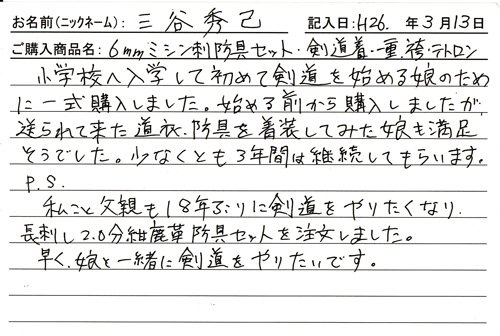 お名前(ニックネーム): 三谷秀己 記入日:H26. 年3月13日
ご購入商品名: 6mmミシン刺防具セット・剣道着・重袴・テトロン
小学校へ入学して初めて剣道を始める娘のため
に一式購入しました。始める前から購入しましたが、
送られて来た道衣、防具を着装してみた娘も満足
そうでした。少なくとも3年間は継続してもらいます。
P.S.
私こと父親も18年ぶりに剣道をやりたくなり、
長刺し2.0分紺鹿革防具セットを注文しました。
早く、娘と一緒に剣道をやりたいです。